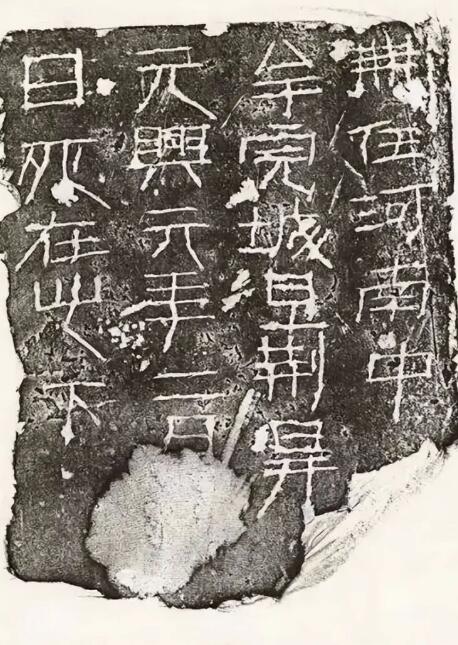 無任河南中
牟完城旦荊
元興元年二月
日死在此下